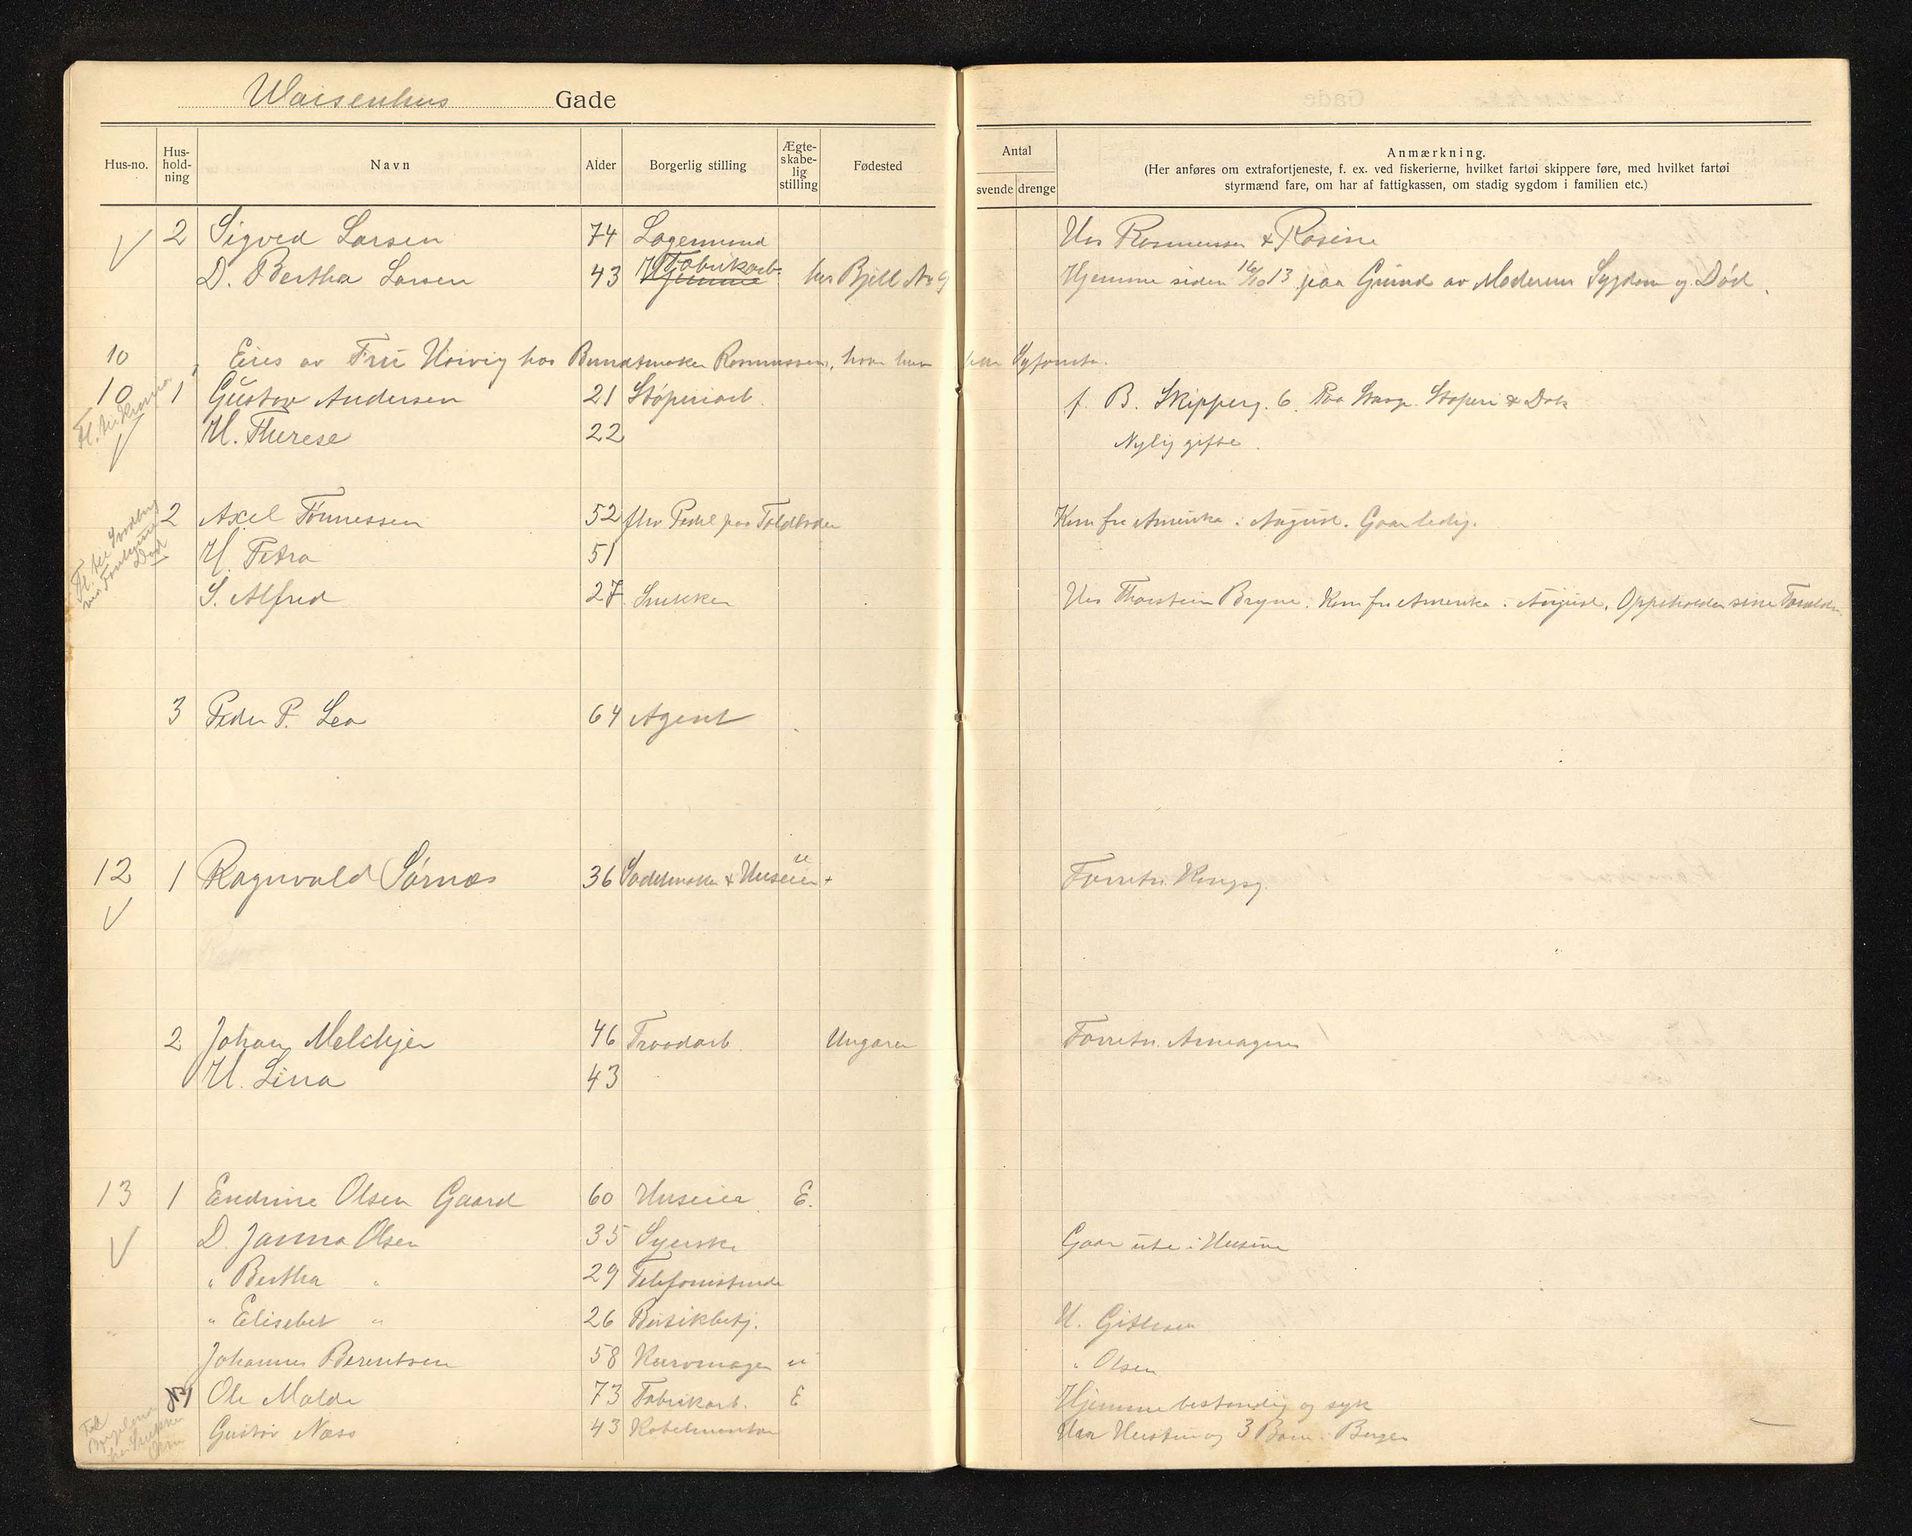 Waisenhus Gade
Hus-no. Hus-hold-ning Navn Alder Borgerlig stilling Ægte-skabe-lig stilling Fødested Antal svende drenge Anmærkning.
(Her anføres om extrafortjeneste, f. ex. ved fiskerierne, hvilket fartøi skippere føre, med hvilket fartøi
styrmænd fare, om har af fattigkassen, om stadig sygdom i familien etc.)
2 Sigved Larsen 74 Lagermand Hos Rasmussen & Rosine
D. Bertha Larsen 43 Fabrikarb. Hjemme hos Bjell No 9 Hjemme siden 16/10 13 paa Grund av Moderens Sygdom og Død.
10 Eies av Fru hos Buntmaker Rasmussen, hvor hun
10 1 Gustav Andersen 21 Støperiarb. f. B. Skipperg. 6. Paa Stavgr. Støperi & Dok
H. Therese 22 Nylig gifte.
2 Axel Tønnessen 52 fhv Pedel paa Toldboden Kom fra Amerika i August. Gaar ledig.
H. Petra 51
S. Alfred 27 Snekker Hos Thorstein Bryne. Kom fra Amerika i August. Oppeholder sine Forældre
3 Peder P. Lea 64 Agent
12 1 Ragnvald Sørnæs 36 Sadelmaker & Huseier u + Forretn. Kongsg.
2 Johan Melchjer 46 Traadarb. Ungarn Forretn.
H. Lina 43
13 1 Endrine Olsen Gaard 60 Huseier E.
D. Janna Olsen 35 Syerske Gaar ute i Husene
" Bertha " 29 Telefonistinde
" Elisebet " 26 Butikbetj. H. Gitlesen
Johannes Berentsen 58 Kurvmager u " Olsen
Ole Malde 73 Fabrikarb. E Hjemme bestandig og syk
Gustav Næss 43 Kabelmontør Har Hustru og 3 Barn i Bergen